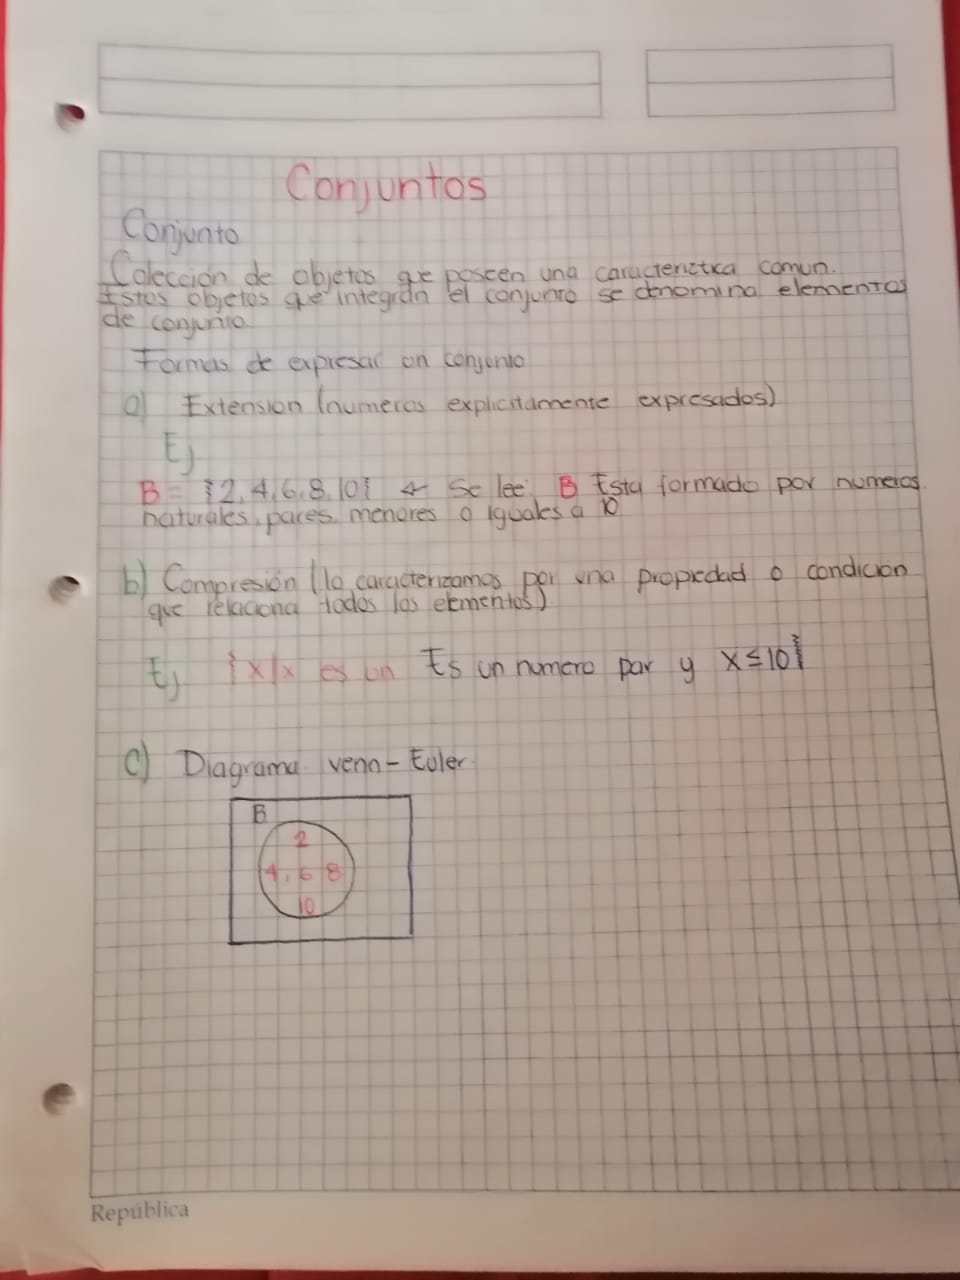 Conjuntos
Conjunto
Colección de objetos que poseen una caracteriztica comun.
Estos objetos que integran el conjunto se denomina elementos
de conjunto.
Formas de expresar un conjunto
a) Extension (numeros explicitamente expresados)
Ej
B = {2, 4, 6, 8, 10} ← Se lee: B Esta formado por numeros
naturales, pares, menores o iguales a 10
b) Compresión (lo caracterizamos por una propiedad o condicion
que relaciona todos los elementos)
Ej {x/x es un Es un numero par y x ≤ 10}
c) Diagrama venn - Euler
B
2
4, 6 8
10
República